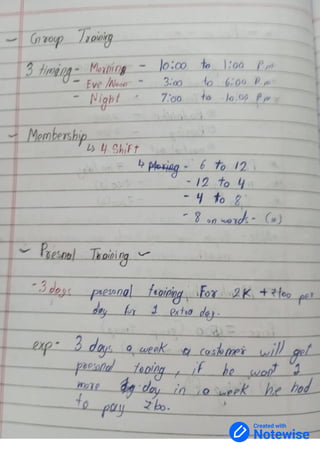 - Group Training
3 timing - Morning - 10:00 to 1:00 P.m
- Eve/Noon - 3:00 to 6:00 P.m
- Night - 7:00 to 10:00 P.m
- Membership
↳ 4 Shift
↳ Moring - 6 to 12
- 12 to 4
- 4 to 8
- 8 on words -
- Presnal Training -
- 3 days presonal training For 2K + 700 per
day for 1 extra day.
exp - 3 days a week a castomer will get
presonal traning, if he want
more day in a week he had
to pay
Created with
Notewise